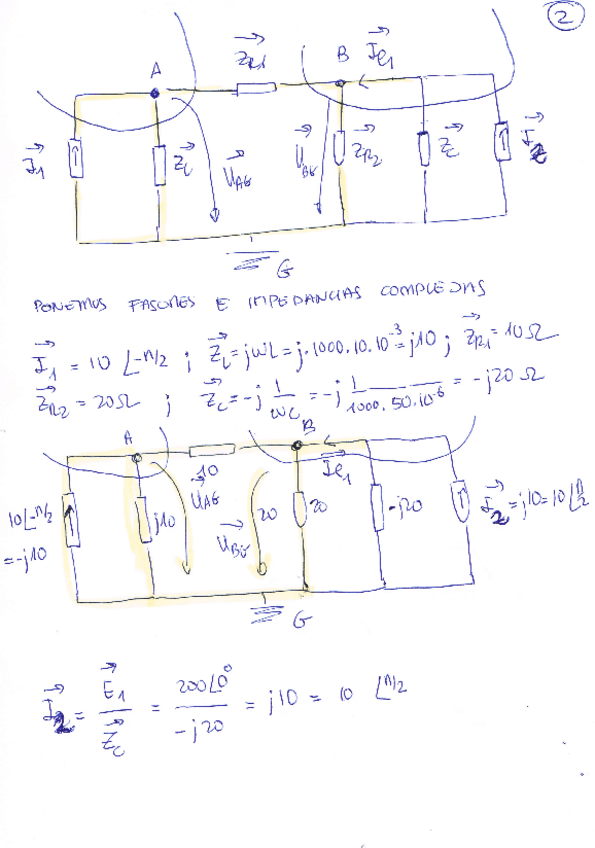 2
A
Z⃗R1
B
I⃗e1
I⃗1
Z⃗L
U⃗AG
U⃗BG
Z⃗R2
Z⃗C
I⃗2
G
PONEMOS FASORES E IMPEDANCIAS COMPLEJAS
I⃗1 = 10 ∠-π/2 ; Z⃗L = jωL = j·1000·10·10⁻³ = j10 ; Z⃗R1 = 10 Ω
Z⃗R2 = 20 Ω ; Z⃗C = -j 1/ωC = -j 1/1000·50·10⁻⁶ = -j20 Ω
A
10
B
I⃗e1
10∠-π/2
= -j10
j10
U⃗AG
U⃗BG
20
20
-j20
I⃗2 = j10 = 10 ∠π/2
G
I⃗2 = E⃗1/Z⃗C = 200∠0°/-j20 = j10 = 10 ∠π/2